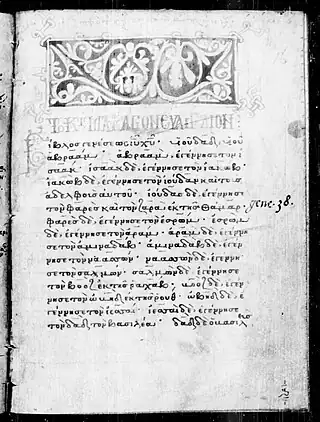 ίβλος γενέσεως ιυ χυ · υυ δαδ · υυ
ἀβραάμ · ἀβραὰμ · ἐγέννησε τὸν ἰ
σαάκ · ἰσαὰκ δὲ · ἐγέννησε τὸν ἰακώβ
ἰακὼβ δὲ · ἐγέννησε τὸν ἰούδαν καὶ τοὺς
ἀδελφοὺς αὐτοῦ · ἰούδας δὲ · ἐγέννησε
τὸν φαρὲς καὶ τὸν ζαρὰ ἐκ τῆς θάμαρ · gene. 38.
φαρὲς δὲ · ἐγέννησε τὸν ἐσρώμ · ἐσρὼμ
δὲ · ἐγέννησε τὸν ἀράμ · ἀρὰμ δὲ · ἐγέννη
σε τὸν ἀμιναδάβ · ἀμιναδὰβ δὲ · ἐγέν
νησε τὸν ναασσών · ναασσὼν δὲ · ἐγέννη
σε τὸν σαλμών · σαλμὼν δὲ · ἐγέννησε
τὸν βοὸζ ἐκ τῆς ραχάβ · βοὸζ δὲ · ἐγέν
νησε τὸν ὠβὴδ ἐκ τῆς ρούθ · ὠβὴδ δὲ · ἐ
γέννησε τὸν ἰεσσαί · ἰεσσαὶ δὲ · ἐγέννησε
τὸν δαδ τὸν βασιλέα · δαδ δὲ ὁ βασιλεὺς